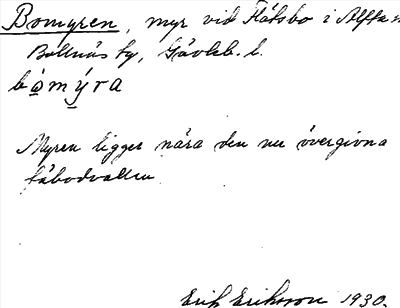 Bomyren, myr vid Flätsbo i Alfta n
Bollnäs ky, Gävleb. l.
bòmýra
Myren ligger nära den nu övergivna
fäbodvallen
Erik Eriksson 1930.